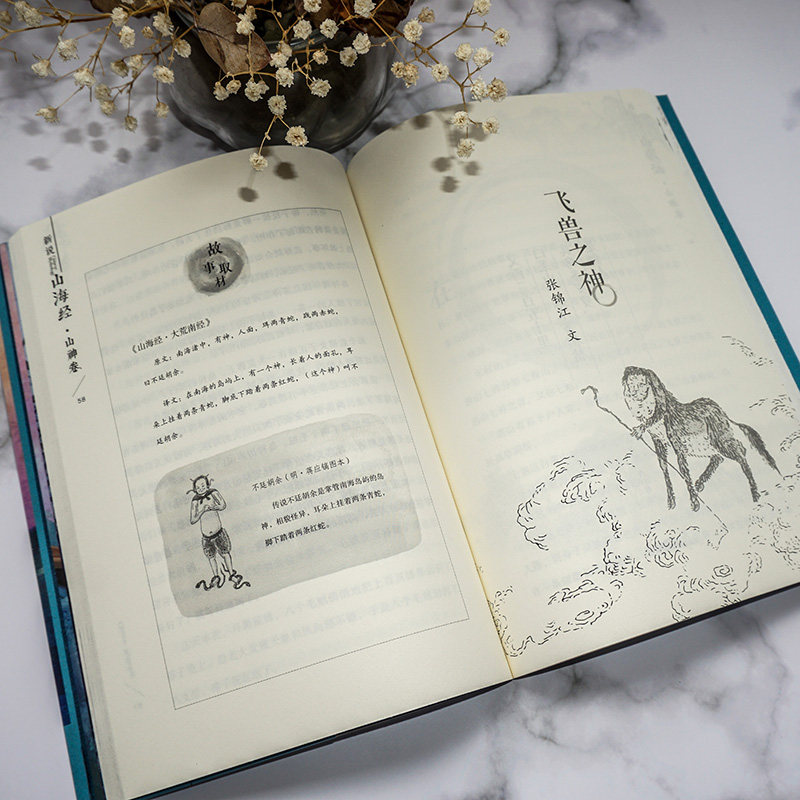 新说山海经·山神卷
58
故事取材
《山海经·大荒南经》
原文：南海渚中，有神，人面，珥两青蛇，践两赤蛇，
曰不廷胡余。
译文：在南海的岛屿上，有一个神，长着人的面孔，耳
朵上挂着两条青蛇，脚底下踏着两条红蛇，（这个神）叫不
廷胡余。
不廷胡余（明·蒋应镐图本）
传说不廷胡余是掌管南海岛屿的岛
神，相貌怪异，耳朵上挂着两条青蛇，
脚下踏着两条红蛇。
飞兽之神
张锦江 文